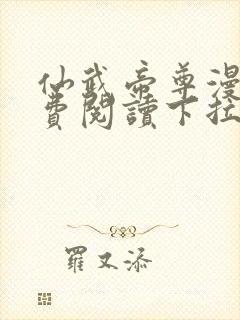 仙武帝尊漫
費閱讀下拉
羅又添